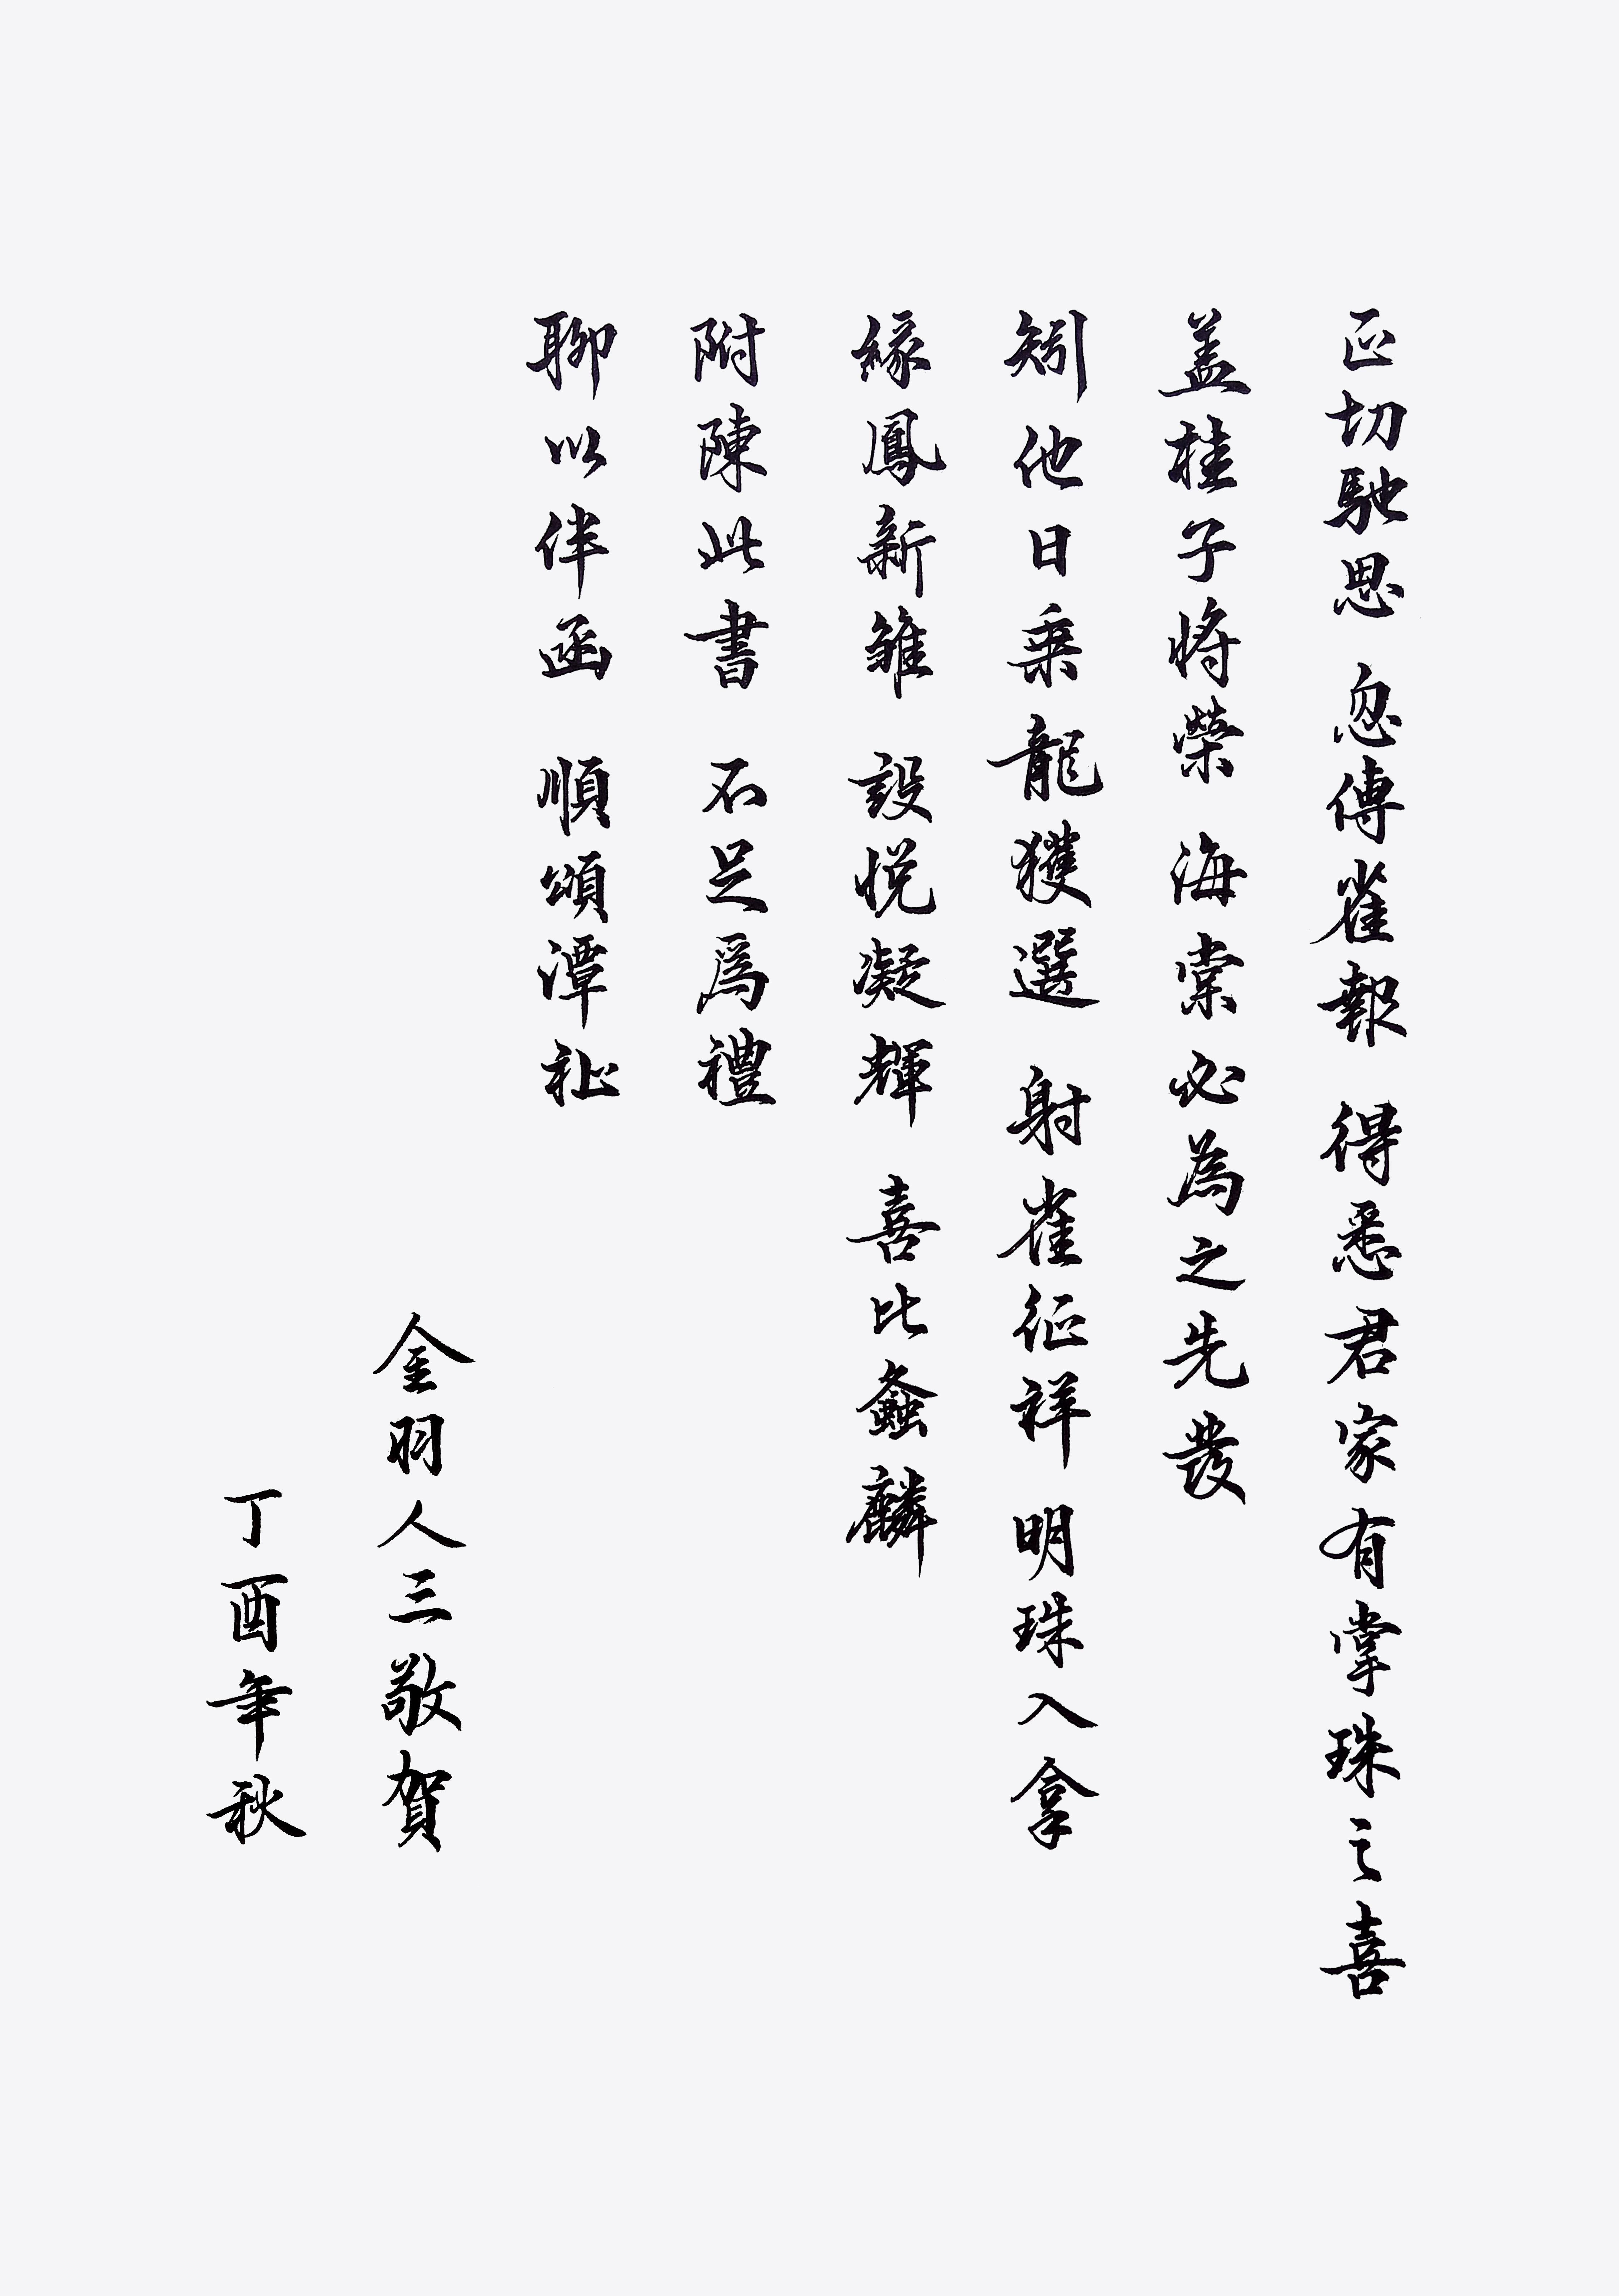 正切馳思 忽傳雀報 得悉君家有掌珠之喜
盖桂子將榮 海棠必為之先發
矧他日乘龍獲選 射雀征祥 明珠入拿
緣鳳新雏 設悦凝輝 喜比螽麟
附陳此書 不足為禮
聊以伴函 順頌潭祉
金羽人三敬賀
丁酉年秋